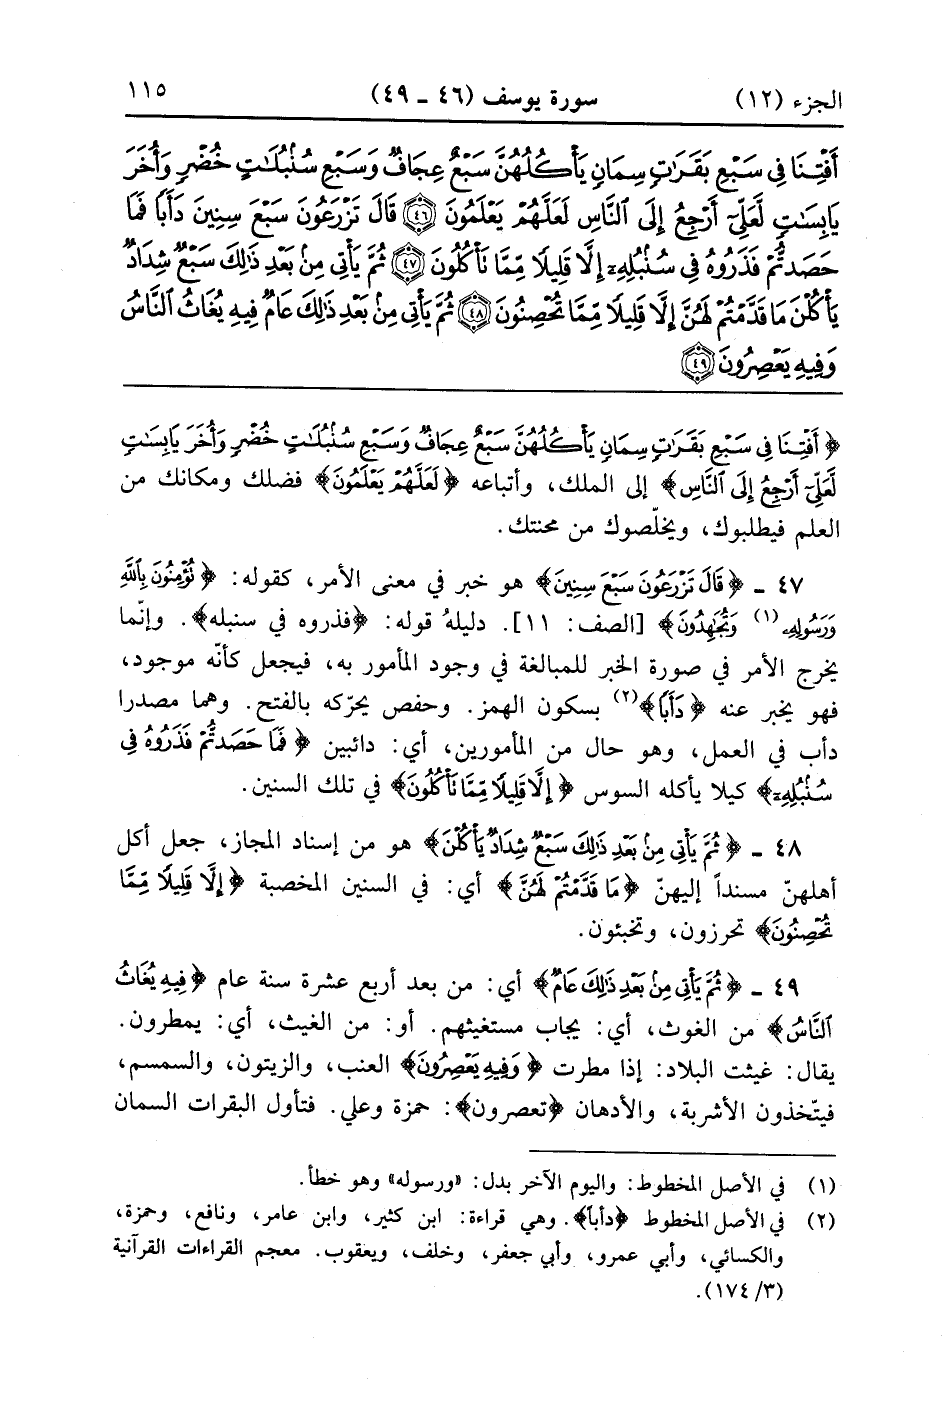 الجزء (١٢) سورة يوسف (٤٦ ـ ٤٩) ١١٥
أَفْتِنَا فِي سَبْعِ بَقَرَٰتٍ سِمَانٍ يَأْكُلُهُنَّ سَبْعٌ عِجَافٌ وَسَبْعِ سُنۢبُلَٰتٍ خُضْرٍ وَأُخَرَ
يَابِسَٰتٍ لَّعَلِّيٓ أَرْجِعُ إِلَى ٱلنَّاسِ لَعَلَّهُمْ يَعْلَمُونَ ﴿٤٦﴾ قَالَ تَزْرَعُونَ سَبْعَ سِنِينَ دَأَبًا فَمَا
حَصَدتُّمْ فَذَرُوهُ فِي سُنۢبُلِهِۦٓ إِلَّا قَلِيلًا مِّمَّا تَأْكُلُونَ ﴿٤٧﴾ ثُمَّ يَأْتِي مِنۢ بَعْدِ ذَٰلِكَ سَبْعٌ شِدَادٌ
يَأْكُلْنَ مَا قَدَّمْتُمْ لَهُنَّ إِلَّا قَلِيلًا مِّمَّا تُحْصِنُونَ ﴿٤٨﴾ ثُمَّ يَأْتِي مِنۢ بَعْدِ ذَٰلِكَ عَامٌ فِيهِ يُغَاثُ ٱلنَّاسُ
وَفِيهِ يَعْصِرُونَ ﴿٤٩﴾
﴿أَفْتِنَا فِي سَبْعِ بَقَرَٰتٍ سِمَانٍ يَأْكُلُهُنَّ سَبْعٌ عِجَافٌ وَسَبْعِ سُنۢبُلَٰتٍ خُضْرٍ وَأُخَرَ يَابِسَٰتٍ
لَّعَلِّيٓ أَرْجِعُ إِلَى ٱلنَّاسِ﴾ إلى الملك، وأتباعه ﴿لَعَلَّهُمْ يَعْلَمُونَ﴾ فضلك ومكانك من
العلم فيطلبوك، ويخلّصوك من محنتك.
٤٧ ـ ﴿قَالَ تَزْرَعُونَ سَبْعَ سِنِينَ﴾ هو خبر في معنى الأمر، كقوله: ﴿تُؤْمِنُونَ بِٱللَّهِ
وَرَسُولِهِۦ(١) وَتُجَٰهِدُونَ﴾ [الصف: ١١]. دليلهُ قوله: ﴿فذروه في سنبله﴾. وإنّما
يخرج الأمر في صورة الخبر للمبالغة في وجود المأمور به، فيجعل كأنّه موجود،
فهو يخبر عنه ﴿دَأَبًا﴾(٢) بسكون الهمز. وحفص يحرّكه بالفتح. وهما مصدرا
دأب في العمل، وهو حال من المأمورين، أي: دائبين ﴿فَمَا حَصَدتُّمْ فَذَرُوهُ فِي
سُنۢبُلِهِۦٓ﴾ كيلا يأكله السوس ﴿إِلَّا قَلِيلًا مِّمَّا تَأْكُلُونَ﴾ في تلك السنين.
٤٨ ـ ﴿ثُمَّ يَأْتِي مِنۢ بَعْدِ ذَٰلِكَ سَبْعٌ شِدَادٌ يَأْكُلْنَ﴾ هو من إسناد المجاز، جعل أكل
أهلهنّ مسنداً إليهنّ ﴿مَا قَدَّمْتُمْ لَهُنَّ﴾ أي: في السنين المخصبة ﴿إِلَّا قَلِيلًا مِّمَّا
تُحْصِنُونَ﴾ تحرزون، وتخبئون.
٤٩ ـ ﴿ثُمَّ يَأْتِي مِنۢ بَعْدِ ذَٰلِكَ عَامٌ﴾ أي: من بعد أربع عشرة سنة عام ﴿فِيهِ يُغَاثُ
ٱلنَّاسُ﴾ من الغوث، أي: يجاب مستغيثهم. أو: من الغيث، أي: يمطرون.
يقال: غيثت البلاد: إذا مطرت ﴿وَفِيهِ يَعْصِرُونَ﴾ العنب، والزيتون، والسمسم،
فيتّخذون الأشربة، والأدهان ﴿تعصرون﴾: حمزة وعلي. فتأول البقرات السمان
(١) في الأصل المخطوط: واليوم الآخر بدل: «ورسوله» وهو خطأ.
(٢) في الأصل المخطوط ﴿دأباً﴾. وهي قراءة: ابن كثير، وابن عامر، ونافع، وحمزة،
والكسائي، وأبي عمرو، وأبي جعفر، وخلف، ويعقوب. معجم القراءات القرآنية
(٣/ ١٧٤).